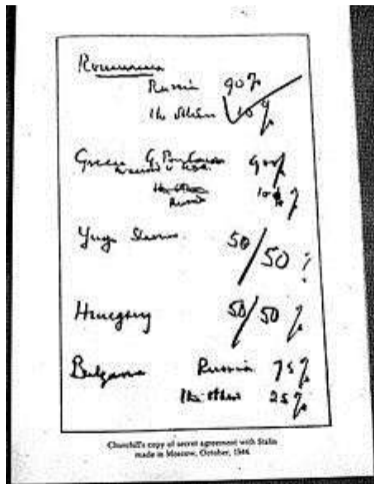 Roumania
Russia 90%
The others 10%
Greece G. Britain 90%
in accord with USA
The others
Russia 10%
Yugo Slavia 50/50%
Hungary 50/50%
Bulgaria Russia 75%
The others 25%
Churchill's copy of secret agreement with Stalin
made in Moscow, October, 1944